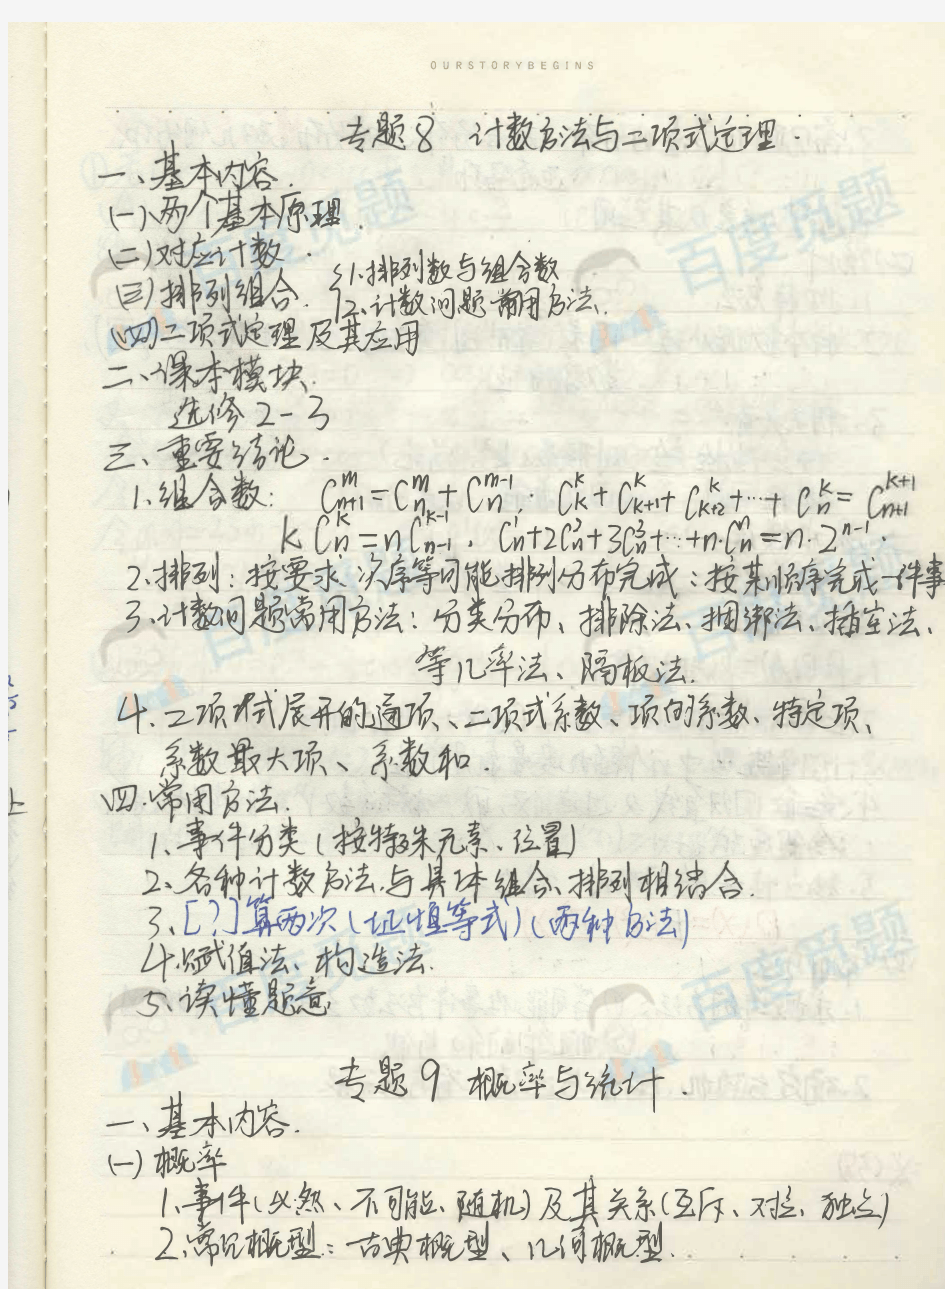 OURSTORYBEGINS
专题8 计数方法与二项式定理.
一、基本内容.
(一)、两个基本原理.
(二)对应计数.
(三)排列组合. {1.排列数与组合数
2.计数问题常用方法.
(四)二项式定理及其应用
二、课本模块.
选修2-3
三、重要结论.
1.组合数: C_{n+1}^{m}=C_{n}^{m}+C_{n}^{m-1}. C_{k}^{k}+C_{k+1}^{k}+C_{k+2}^{k}+…+C_{n}^{k}=C_{n+1}^{k+1}
kC_{n}^{k}=nC_{n-1}^{k-1}. C_{n}^{1}+2C_{n}^{2}+3C_{n}^{3}+…+n·C_{n}^{n}=n·2^{n-1}.
2.排列:按要求、次序等可能排列分布完成:按某顺序完成一件事
3、计数问题常用方法:分类分布、排除法、捆绑法、插空法、
等几率法、隔板法.
4、二项式展开的通项、二项式系数、项的系数、特定项、
系数最大项、系数和.
四.常用方法.
1、事件分类(按特殊元素、位置)
2、各种计数方法与具体组合、排列相结合.
3、[?]算两次(证恒等式)(两种方法)
4.赋值法、构造法.
5、读懂题意
专题9 概率与统计.
一、基本内容.
(一)概率
1、事件(必然、不可能、随机)及其关系(互斥、对立、独立)
2、常见概型:古典概型、几何概型.
百度觅题
百度觅题
百度觅题
百度觅题
百度觅题
百度觅题